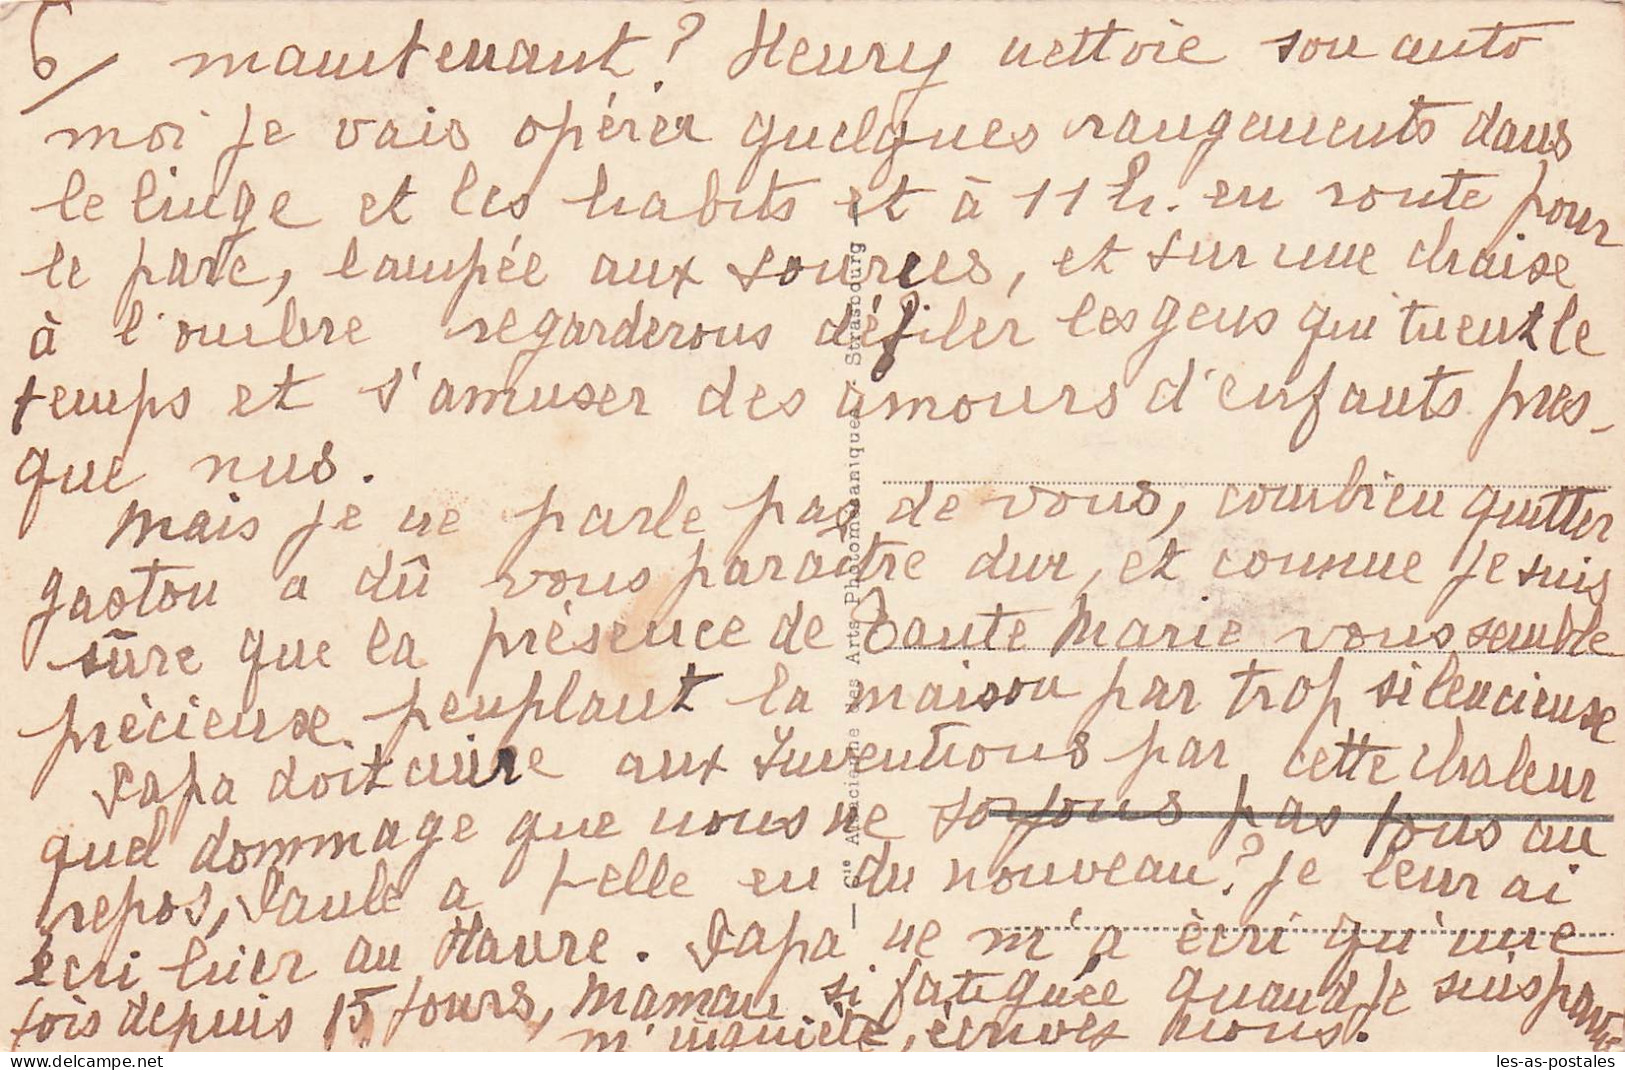 6/ maintenant? Henry nettoie son auto
moi je vais opérer quelques rangements dans
le linge et les habits et à 11 h. en route pour
le parc, lampée aux sources, et sur une chaise
à l'ombre regarderons défiler les gens qui tuent le
temps et s'amuser des amours d'enfants pres-
que nus.
Mais je ne parle pas de vous, combien quitter
gaston a dû vous paraître dur, et comme je suis
sûre que la présence de Tante Marie vous semble
précieuse peuplant la maison par trop silencieuse
Papa doit cuire aux Inventions par cette chaleur
quel dommage que nous ne soyons pas tous au
repos, Paule a t-elle eu du nouveau? je leur ai
écri hier au Havre. Papa ne m'a écri qu'une
fois depuis 15 jours, Maman si fatiguée quand je suis partie
m'inquiète, écrivez nous.
Cie Alsacienne des Arts Photomécaniques, Strasbourg
les-as-postales